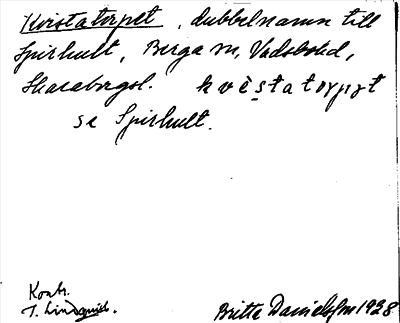 Kvistatorpet, dubbelnamn till
Spirhult, Berga sn, Vadsbohd,
Skaraborgsl. kvèstatorpət
se Spirhult.
Kontr.
I. Lindquist.
Britta Danielsson 1938